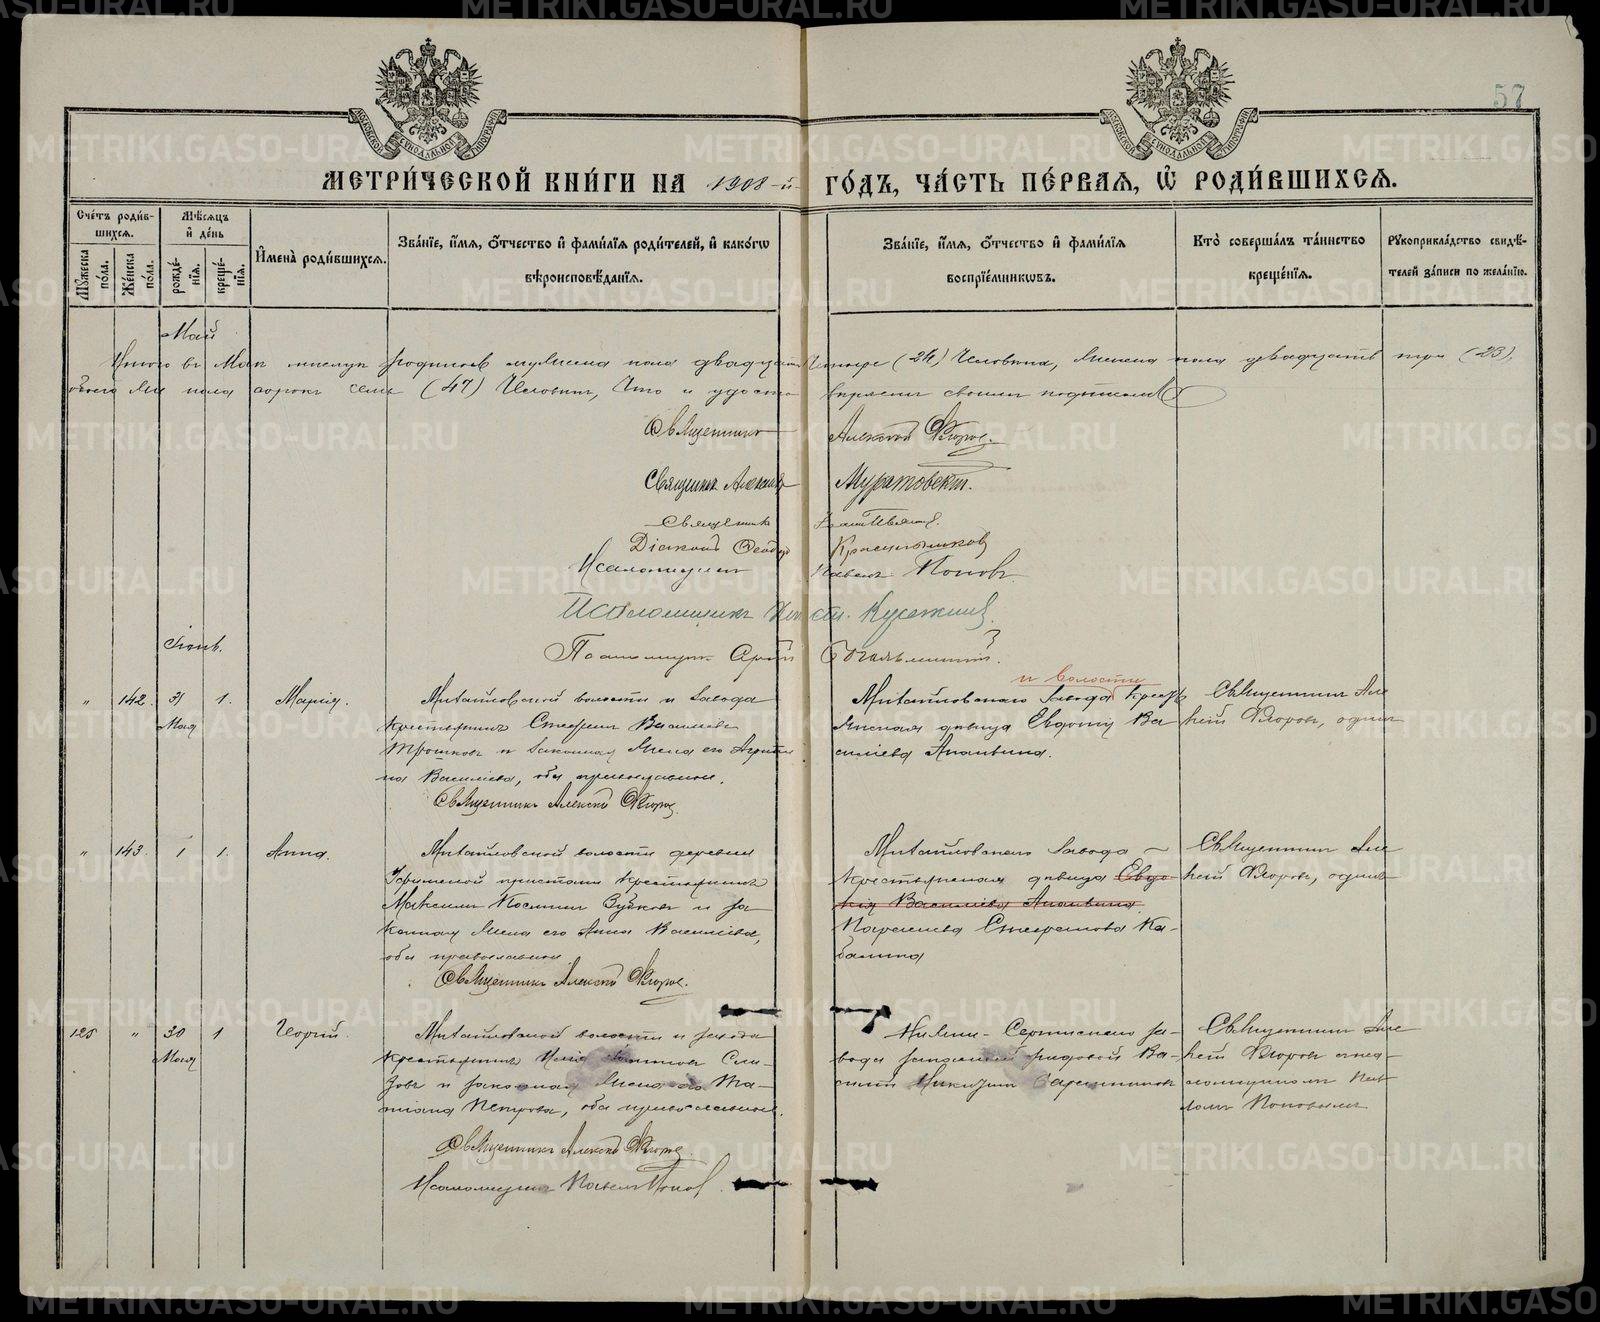 57
МЕТРИ́ЧЕСКОЙ КНИ́ГИ НА 1908-й ГО́ДЪ, ЧА́СТЬ ПЕ́РВАЯ, Ѡ҆ РОДИ́ВШИХСЯ.
Сче́тъ роди́в-
шихся.
Му́жеска по́ла.
Же́нска по́ла.
Мѣ́сяцъ и҆ де́нь
рожде́нїя.
креще́нїя.
И҆мена̀ роди́вшихся.
Зва́нїе, и҆́мя, ѻ҆́тчество и҆ фами́лїя роди́телей, и҆ како́гѡ
вѣроисповѣ́данїя.
Зва́нїе, и҆́мя, ѻ҆́тчество и҆ фами́лїя
воспрїе́мникѡвъ.
Кто̀ соверша́лъ та́инство
креще́нїя.
Рꙋкоприкла́дство свидѣ́-
телей за́писи по жела́нїю.
Май
Итого въ Маѣ мѣсяцѣ родилось мужеска пола двадцать четыре (24) человѣка, женска пола двадцать три (23),
обоего же пола сорокъ семь (47) человѣкъ, что и удостовѣряемъ своимъ подписомъ
Священникъ Алексѣй Флоровъ.
Священникъ Муратовскій.
Священникъ
Діаконъ Ѳеодоръ Красильниковъ
Псаломщикъ Павелъ Поповъ
Псаломщикъ
Псаломщикъ
Іюнь.
" 142. 31 Мая 1. Марія.
Михайловской волости и завода
крестьянинъ Стефанъ Василіевъ
Трошковъ и законная жена его Агрипи-
на Василіева, оба православные.
Священникъ Алексѣй Флоровъ.
и волости
Михайловскаго Завода кресть-
янская дѣвица Евдокія Ва-
силіева Апанина.
Священникъ Але-
ксѣй Флоровъ, одинъ
" 143. 1 1. Анна.
Михайловской волости деревни
Уфимской пристани крестьянинъ
Максимъ Козминъ Зубковъ и за-
конная жена его Анна Василіева,
оба православные
Священникъ Алексѣй Флоровъ.
Михайловскаго Завода
крестьянская дѣвица Евдо-
кія Василіева Апанина
Стефанова Ка-
банина
Священникъ Але-
ксѣй Флоровъ, одинъ
125 " 30 Мая 1 Георгій.
Михайловской волости и завода
крестьянинъ
и законная жена его Та-
тіана Петрова, оба православные.
Священникъ Алексѣй Флоровъ.
Псаломщикъ Павелъ Поповъ.
Нижне-Сергинскаго за-
вода запасный рядовой Ва-
силій Никитинъ
Священникъ Але-
ксѣй Флоровъ съ пса-
ломщикомъ Пав-
ломъ Поповымъ